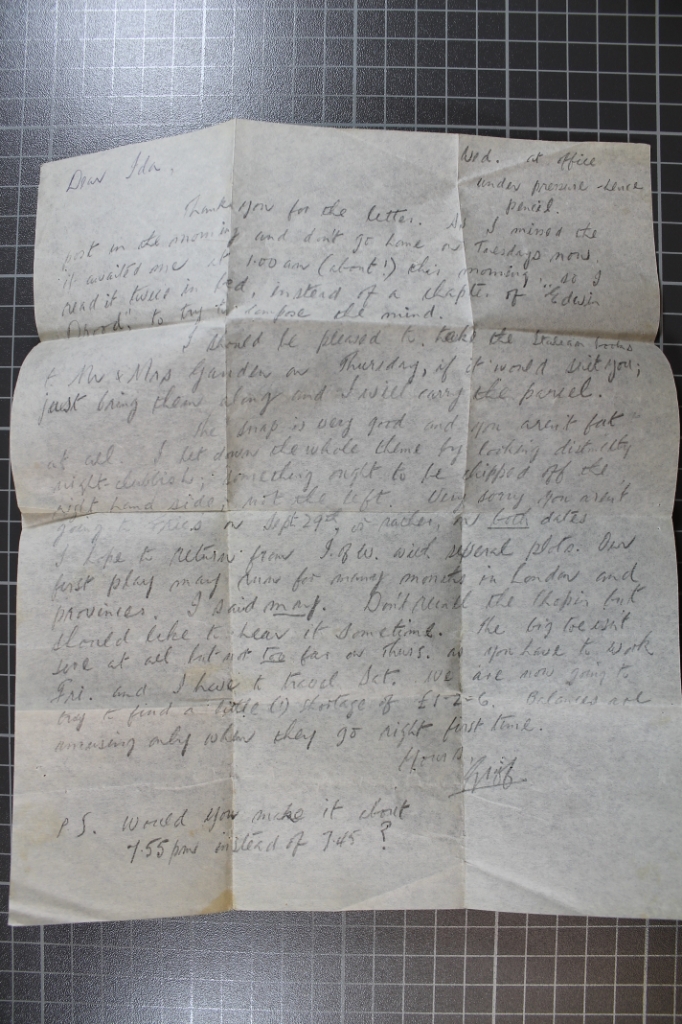 Wed. at office
under pressure - hence
pencil.
Dear Ida,
Thank you for the letter. As I missed the
post in the morning and don't go home on Tuesdays now
it awaited me at 1.00 am (about!) this morning, so I
read it twice in bed, instead of a chapter of "Edwin
Drood" to try to compose the mind.
I should be pleased to take the books
to Mr & Mrs Garden on Thursday, if it would suit you;
just bring them along and I will carry the parcel.
The snap is very good and you aren't "fat"
at all. I let down the whole theme by looking distinctly
; something ought to be chipped off the
right hand side, not the left. Very sorry you aren't
going to on Sept 29th, or rather, on both dates
I hope to return from I. of W. with several plots. Our
first play may run for many months in London and
provinces. I said may. Don't recall the Chopin but
should like to hear it sometime. The big toe isn't
sore at all but not too far on Thurs. as you have to work
Fri. and I have to travel Sat. We are now going to
try to find a little (!) shortage of £1-2-6. Balances are
amusing only when they go right first time.
Yours,
PS. Would you make it about
7.55 pm instead of 7.45 ?